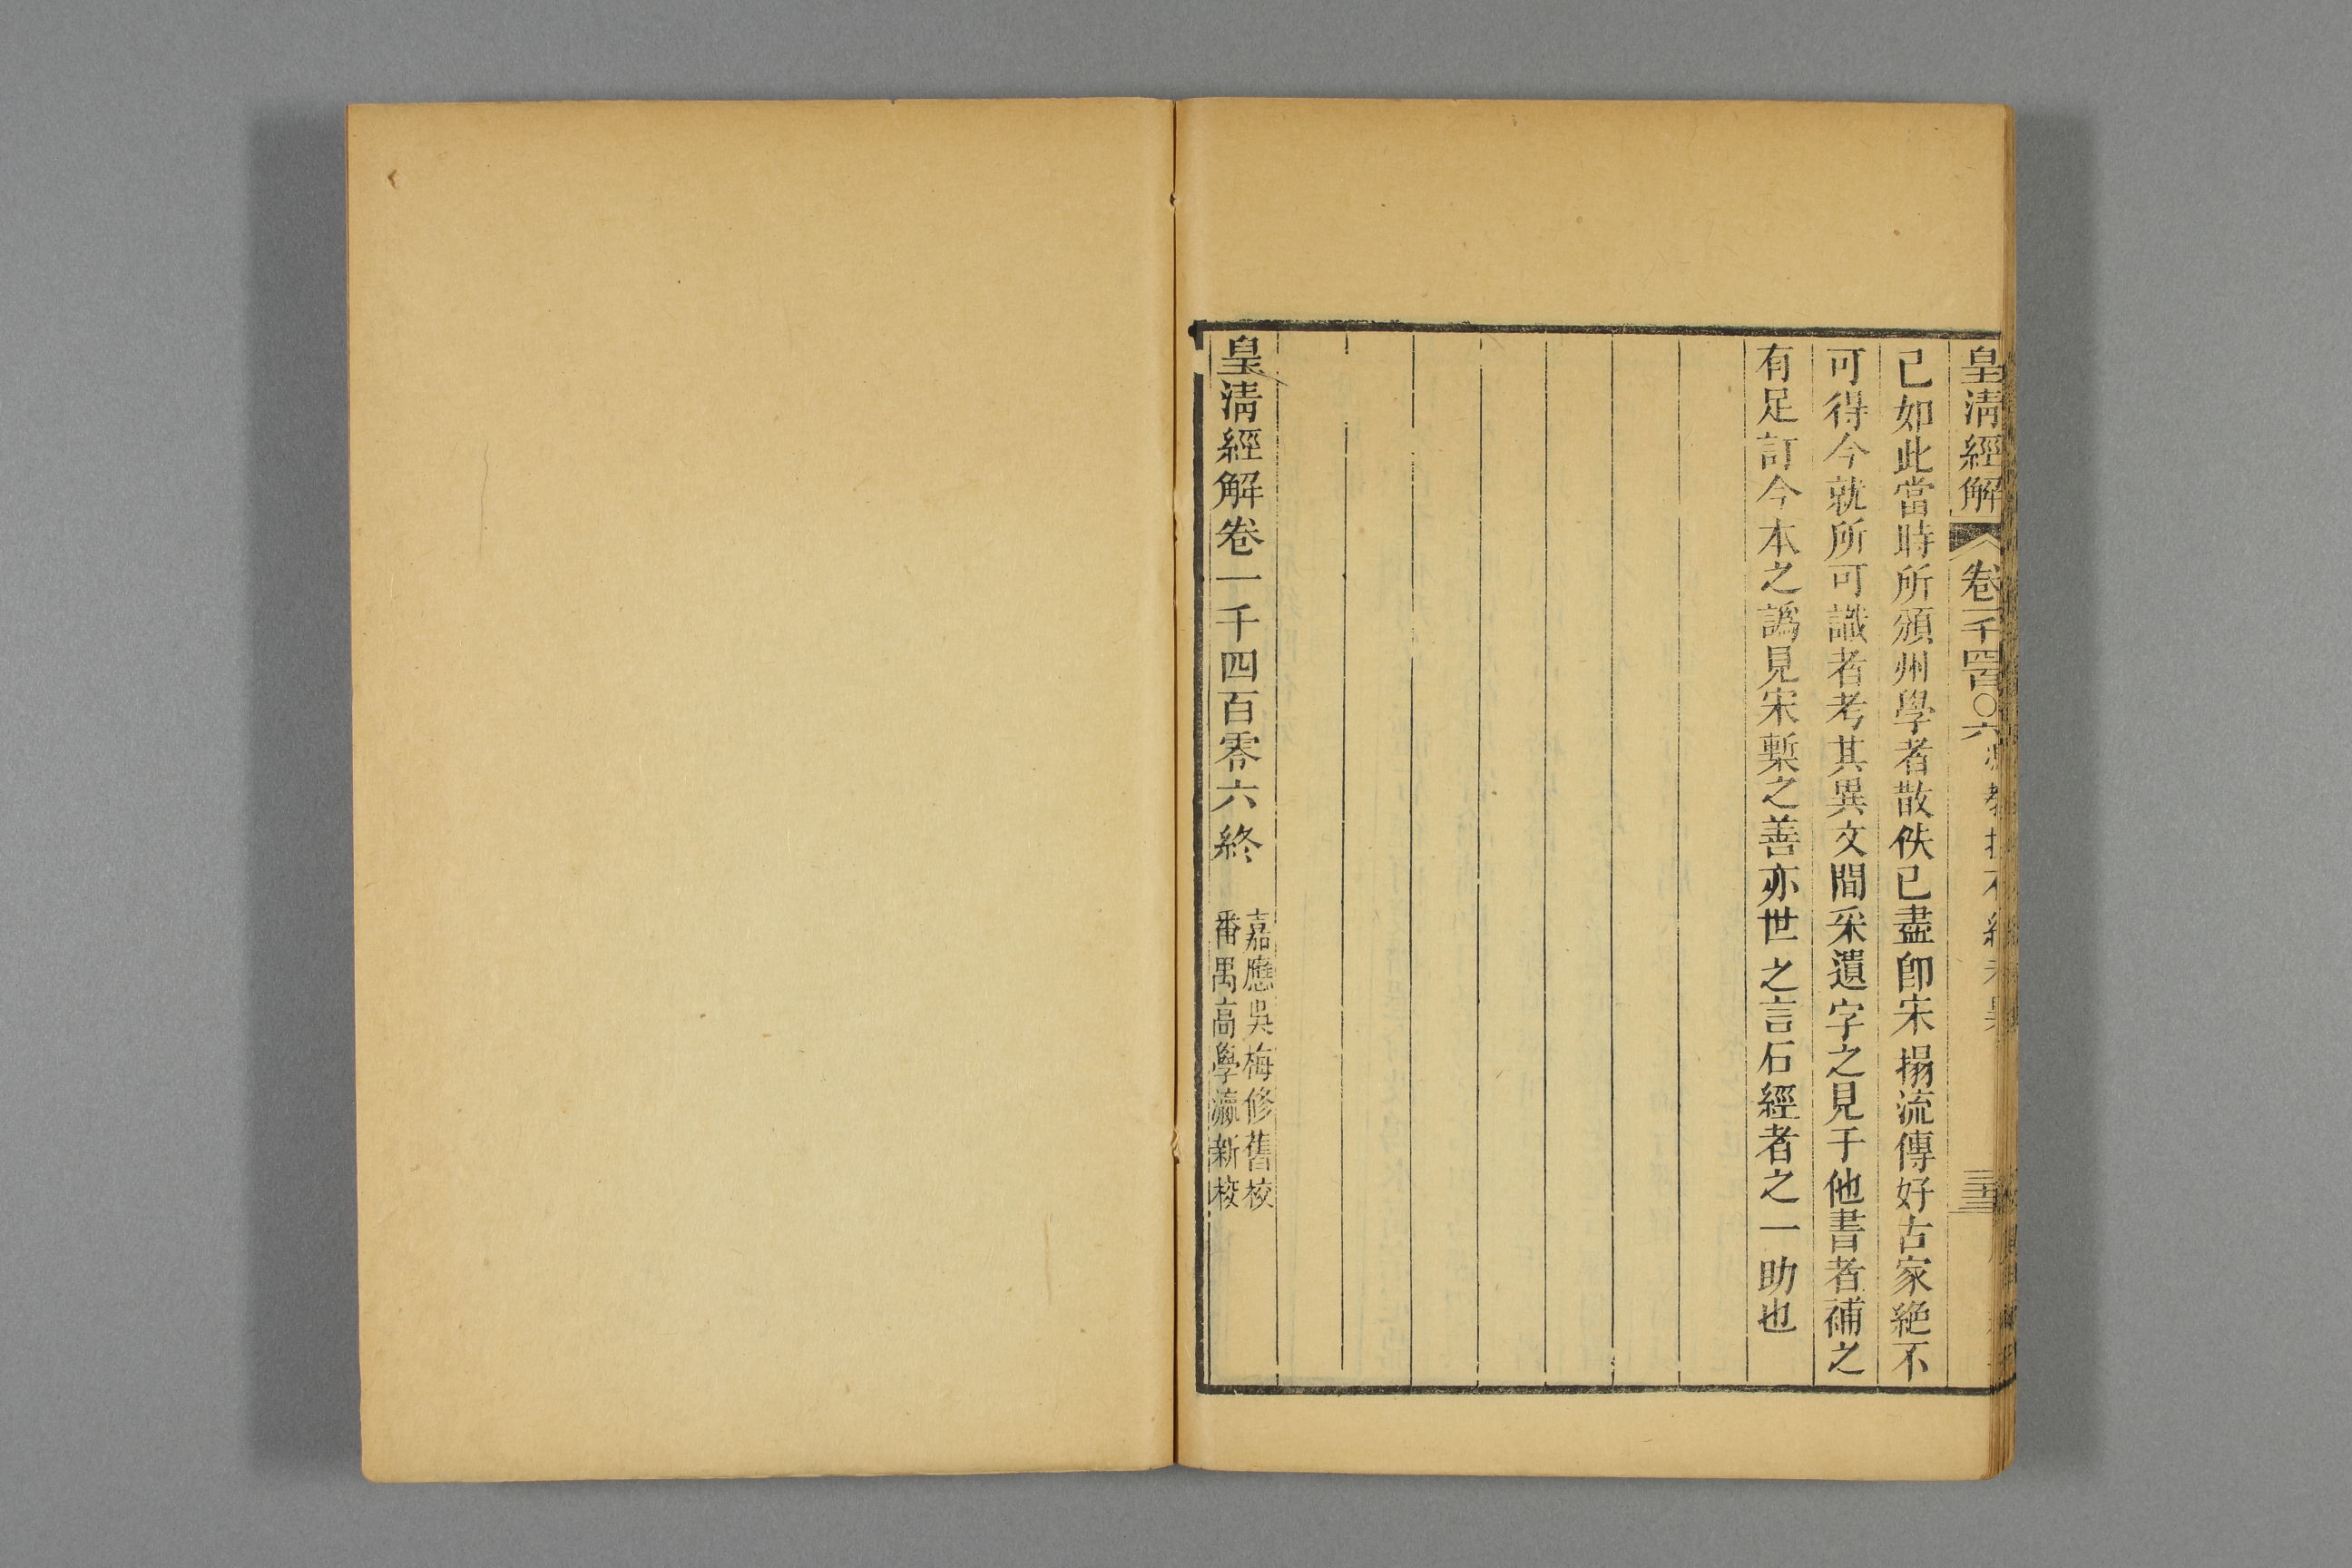 皇清經解 卷一千四百〇六
已如此當時所頒州學者散佚已盡卽宋搨流傳好古家絶不
可得今就所可識者考其異文間采遺字之見于他書者補之
有足訂今本之譌見宋槧之善亦世之言石經者之一助也
皇清經解卷一千四百零六終
嘉應吳梅修舊校
番禺高學瀛新校